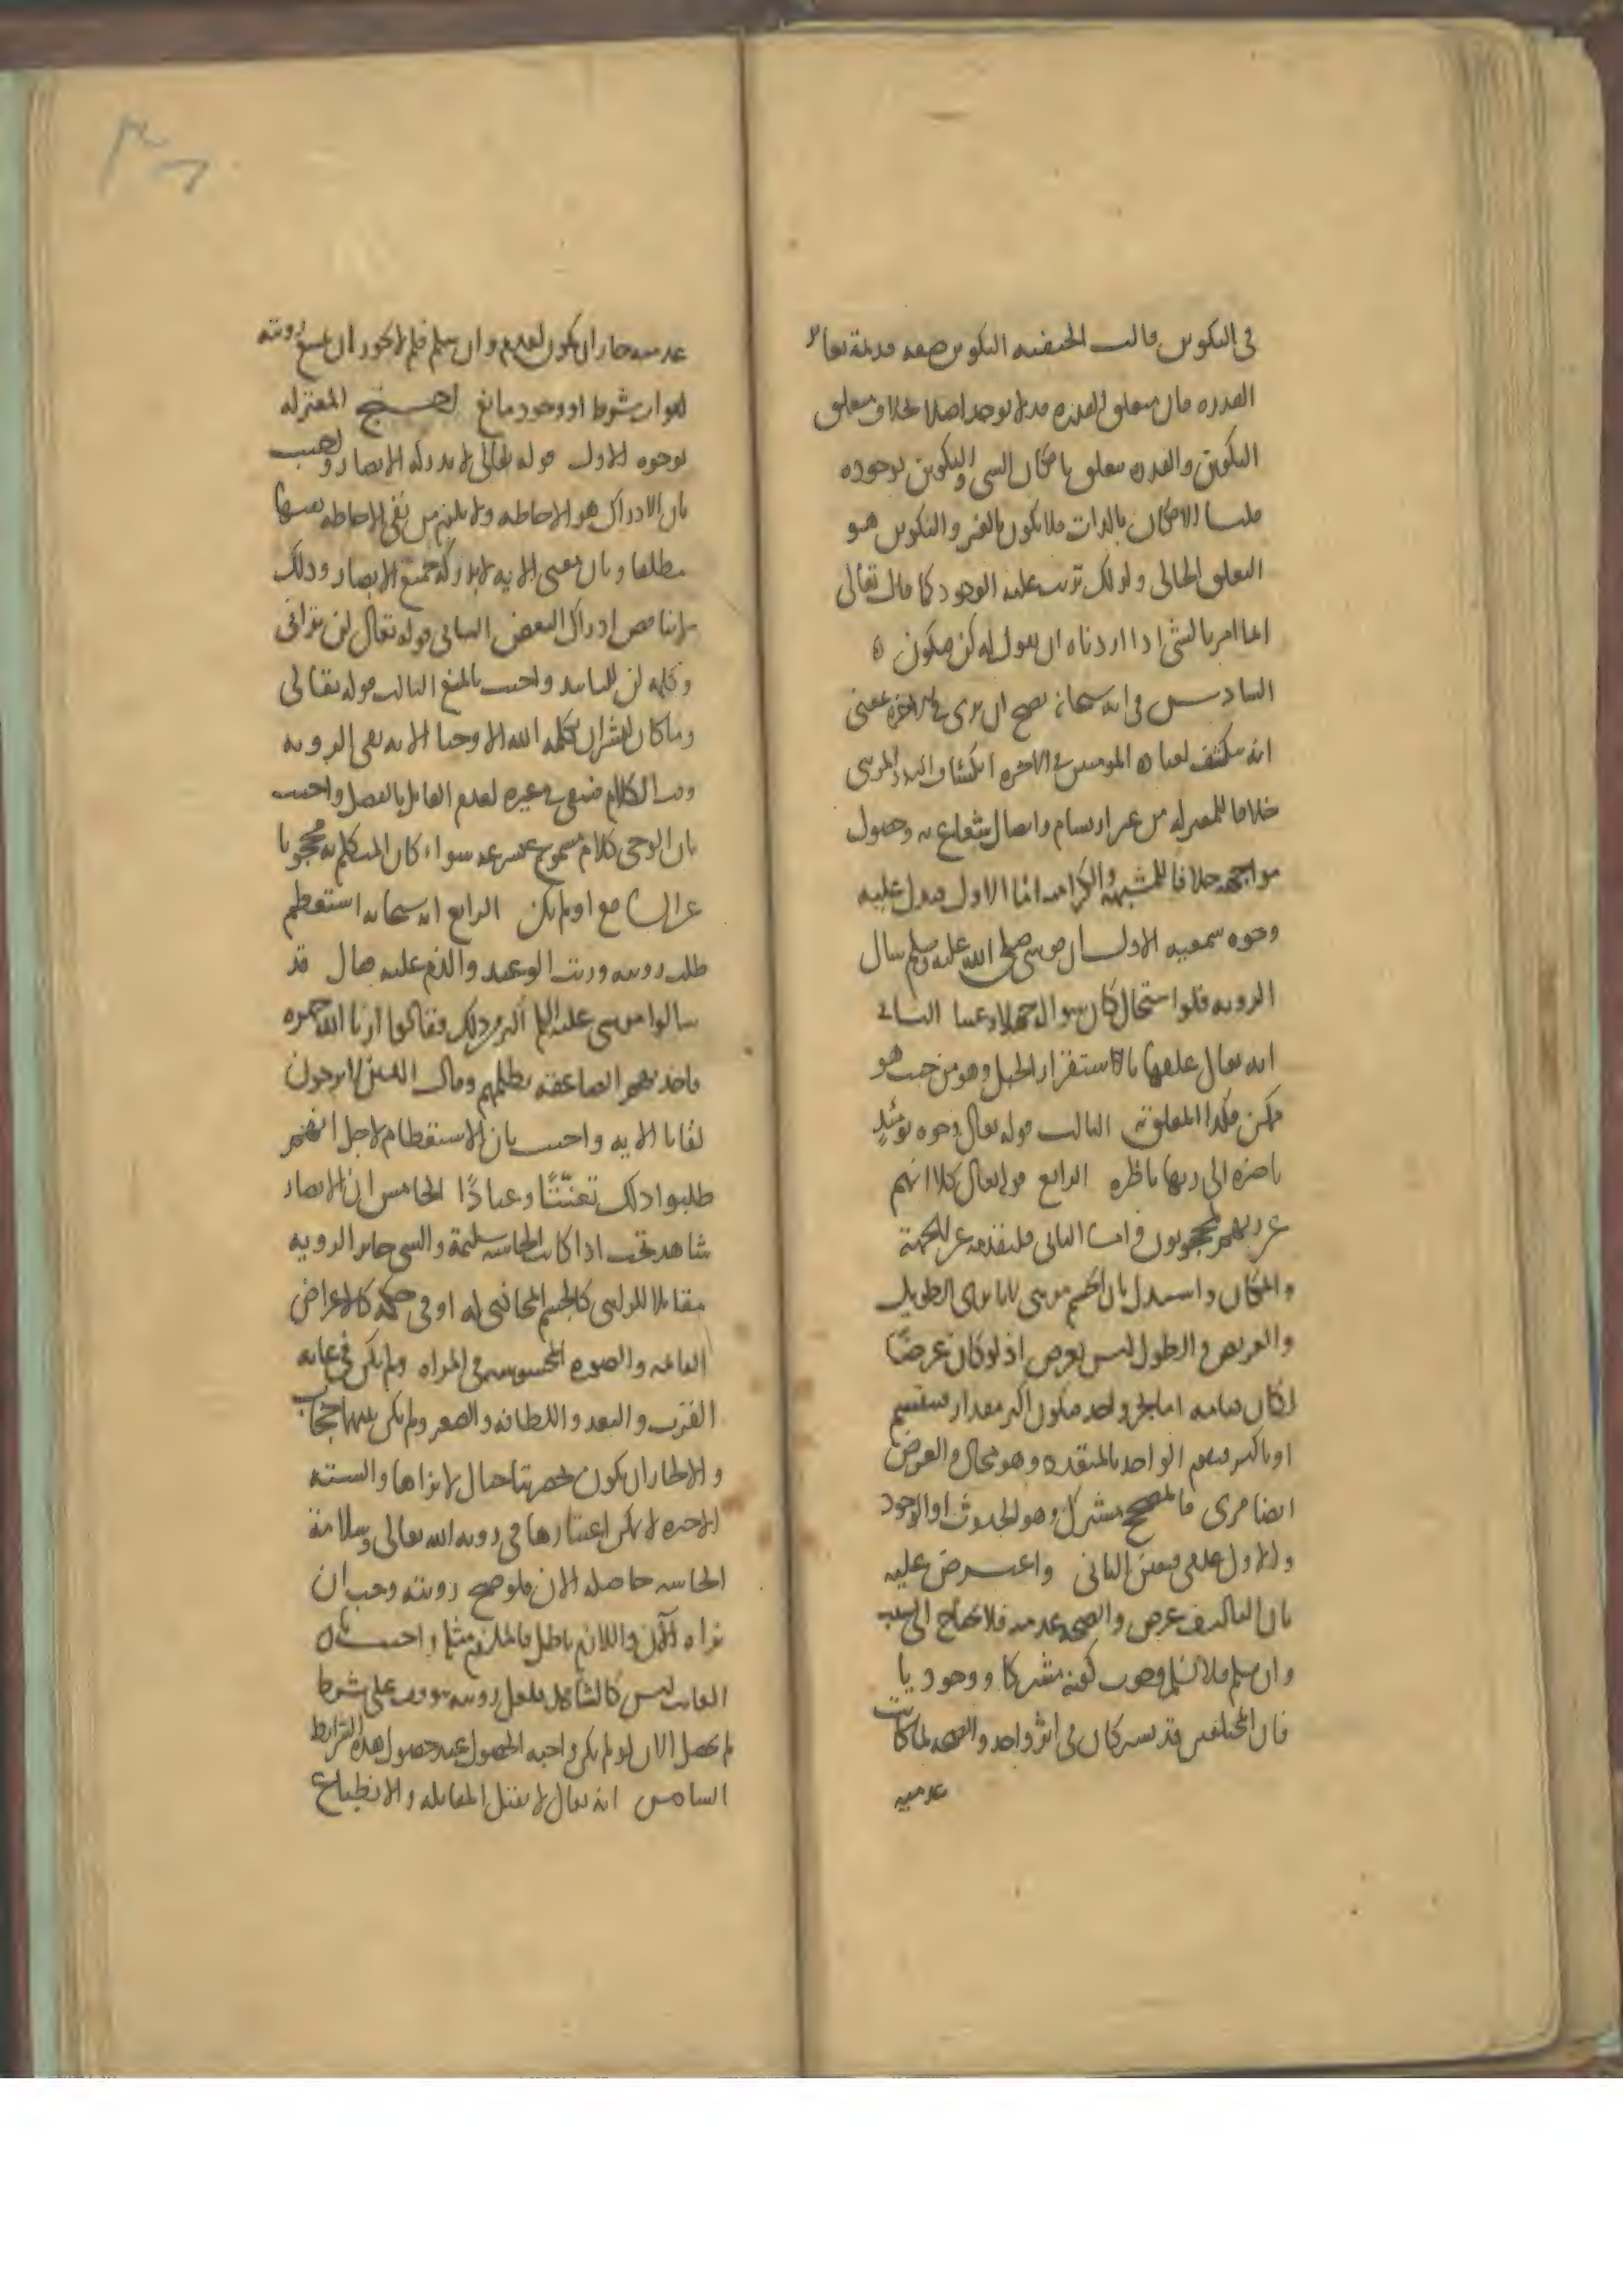 في التكوين قالت الحنفية التكوين صفة قديمة تغاير
القدرة فان متعلق القدرة قد لا يوجد اصلا بخلاف متعلق
التكوين والقدرة متعلق بامكان الشي والتكوين بوجوده
قلنا الامكان بالذات فلا يكون بالغير والتكوين هو
التعلق الحالي ولذلك ترتب عليه الوجود كما قال تعالى
انما امرنا لشئ اذا اردناه ان نقول له كن فيكون ه
السادس في انه سبحانه يصح ان يرى في الاخرة بمعنى
انه ينكشف لعباده المومنين في الاخرة انكشاف البدر المرئي
خلافا للمعتزلة من غير ارتسام واتصال شعاع به وحصول
مواجهة خلافا للمشبهة والكرامية اما الاول فيدل عليه
وجوه سمعية الاول ان موسى صلى الله عليه وسلم سال
الروية فلو استحال كان سواله جهلا وعبثا الثاني
انه تعالى علقها باستقرار الجبل وهو من حيث هو
ممكن فكذا المعلق به الثالث قوله تعالى وجوه يومئذٍ
ناضرة الى ربها ناظرة الرابع قوله تعالى كلا انهم
عن ربهم لمحجوبون واما الثاني فلتقدسه عن الجهة
والمكان واستدل بان الجسم مرئي لانا نرى الطويل
والعريض والطول ليس بعرض اذ لو كان عرضًا
لكان قيامه اما بجزء واحد فيكون اكبر مقدارا فينقسم
او باكثر فيقوم الواحد بالمتعدد وهو محال والعرض
ايضا مرى فالمصحح مشترك وهو الحدوث او الوجود
والاول عدمي فتعين الثاني واعترض عليه
بان التاليف عرض والصحة عدمية فلا تحتاج الى سبب
وان سلم فلا نسلم وجوب كونه مشتركا ووجوديا
فان المختلفين قد يشتركان في اثر واحد والصحة لما كانت
عدمية
عدمية جاز ان يكون لعدم وان سلم فلم لا يجوز ان تمتنع رويته
لفوات شرط او وجود مانع احتج المعتزلة
بوجوه الاول قوله تعالى لا تدركه الابصار واجيب
بان الادراك هو الاحاطة ولا يلزم من نفي الاحاطة نفيها
مطلقا وبان معنى الاية لا تدركه جميع الابصار وذلك
لا يناقض ادراك البعض الثاني قوله تعالى لن تراني
وكلمة لن للتابيد واجيب بالمنع الثالث قوله تعالى
وما كان لبشر ان يكلمه الله الا وحيا الاية نفى الروية
وقت الكلام فتنتفي في غيره لعدم القائل بالفصل واجيب
بان الوحي كلام مسموع بسرعة سواء كان المتكلم به محجوبا
عن السامع او لم يكن الرابع انه سبحانه استعظم
طلب رويته ورتب الوعيد والذم عليه فقال قد
سالوا موسى عليه السلام اكبر من ذلك فقالوا ارنا الله جهرة
فاخذتهم الصاعقة بظلمهم وقال الذين لا يرجون
لقانا الاية واجيب بان الاستعظام لاجل انهم
طلبوا ذلك تعنّتًا وعنادًا الخامس ان الابصار
شاهد تجب اذا كانت الحاسة سليمة والشي جايز الروية
مقابلا للرائي كالجسم المحاذي له او في حكمه كالاعراض
القائمة والصورة المحسوسة في المراة ولم يكن في غاية
القرب والبعد واللطافة والصغر ولم يكن بينهما حجاب
والا لجاز ان يكون بحضرتنا جبال لا نراها والستة
الاخيرة لا يمكن اعتبارها في روية الله تعالى وسلامة
الحاسة حاصلة الان فلو صح رويته وجب ان
نراه الآن واللازم باطل فالملزوم مثله واجيب بان
الغائب ليس كالشاهد فلعل رويته تتوقف على شرط
لم يحصل الان او لم يكن واجبة الحصول عند حصول هذه الشرايط
السادس انه تعالى لا يقبل المقابلة والانطباع